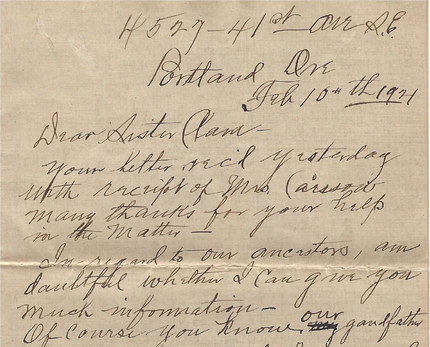 4527-41st Ave S.E.
Portland Ore
Feb 10th 1921
Dear Sister Clara-
Your letter rec'd yesterday
with receipt of Mrs.
many thanks for your help
in the Matter-
In regard to our ancestors, am
doubtful whether I can give you
much information-
Of Course you know, our gandfather